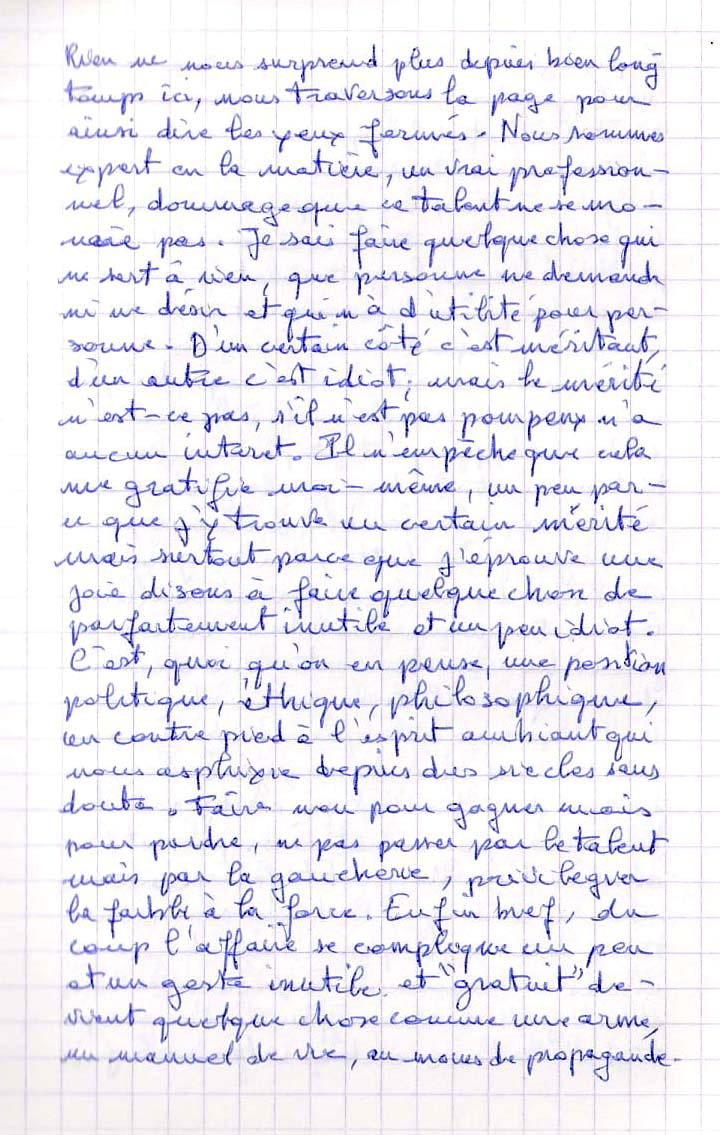 Rien ne nous surprend plus depuis bien long
temps ici, nous traversons la page pour
ainsi dire les yeux fermés. Nous sommes
expert en la matière, un vrai profession-
nel, dommage que ce talent ne se mo-
naie pas. Je sais faire quelque chose qui
ne sert à rien, que personne ne demande
ni ne désir et qui n'à d'utilité pour per-
sonne. D'un certain côté c'est méritant,
d'un autre c'est idiot, mais le mérite
n'est-ce pas, s'il n'est pas pompeux n'a
aucun interet. Il n'empèche que cela
me gratifie moi-même, un peu par-
ce que j'y trouve un certain mérite
mais surtout parce que j'éprouve une
joie disons à faire quelque chose de
parfaitement inutile et un peu idiot.
C'est, quoi qu'on en pense, une position
politique, éthique, philosophique,
un contre pied à l'esprit ambiant qui
nous asphixie depuis des siècles sans
doute. Faire non pour gagner mais
pour perdre, ne pas passer par le talent
mais par la gaucherie, privilegier
la faible à la force. Enfin bref, du
coup l'affaire se complique un peu
et un geste inutile et "gratuit" de-
vient quelque chose comme une arme,
un manuel de vie, au moins de propagande.